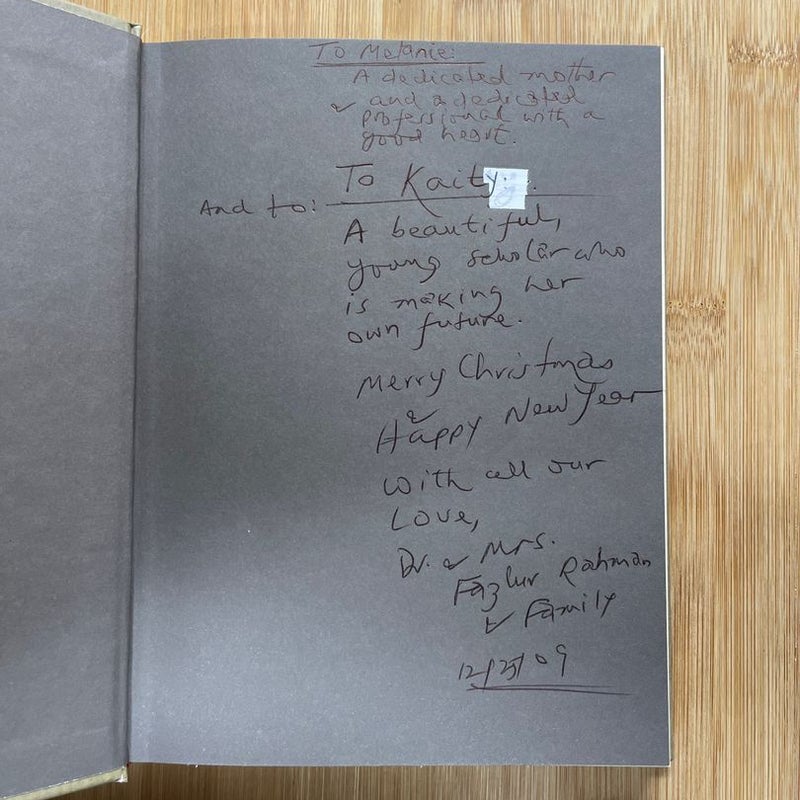 To Melanie:
A dedicated mother
and a dedicated
professional with a
good heart.
To Kaity:
And to:
A beautiful,
young scholar who
is making her
own future.
Merry Christmas
&
Happy New Year
with all our
Love,
Dr. & Mrs.
Fazlur Rahman
& Family
12/25/09